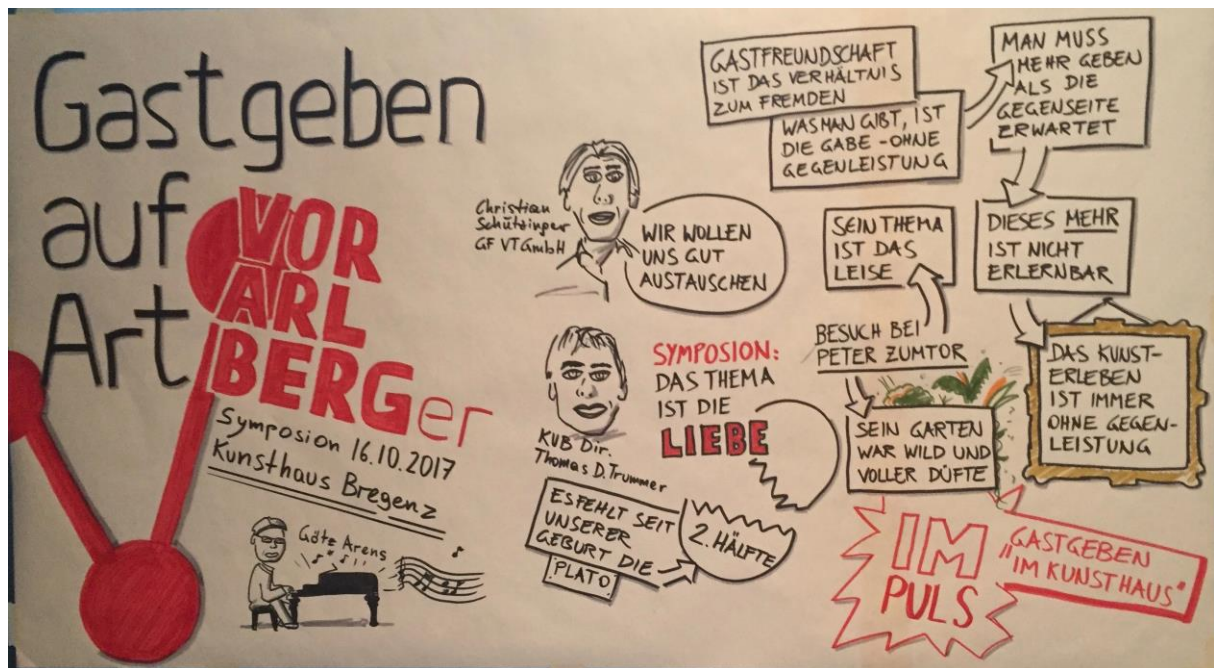 Gastgeben
auf
Art
VOR
ARL
BERGer
Symposion 16.10.2017
Kunsthaus Bregenz
Götz Arens
Christian
Schützinger
GF VT GmbH
WIR WOLLEN
UNS GUT
AUSTAUSCHEN
KUB Dir.
Thomas D. Trummer
SYMPOSION:
DAS THEMA
IST DIE
LIEBE
ES FEHLT SEIT
UNSERER
GEBURT DIE
PLATO
2. HÄLFTE
GASTFREUNDSCHAFT
IST DAS VERHÄLTNIS
ZUM FREMDEN
WAS MAN GIBT, IST
DIE GABE - OHNE
GEGENLEISTUNG
MAN MUSS
MEHR GEBEN
ALS DIE
GEGENSEITE
ERWARTET
DIESES MEHR
IST NICHT
ERLERNBAR
DAS KUNST-
ERLEBEN
IST IMMER
OHNE GEGEN-
LEISTUNG
BESUCH BEI
PETER ZUMTOR
SEIN THEMA
IST DAS
LEISE
SEIN GARTEN
WAR WILD UND
VOLLER DÜFTE
IM
PULS
GASTGEBEN
"IM KUNSTHAUS"